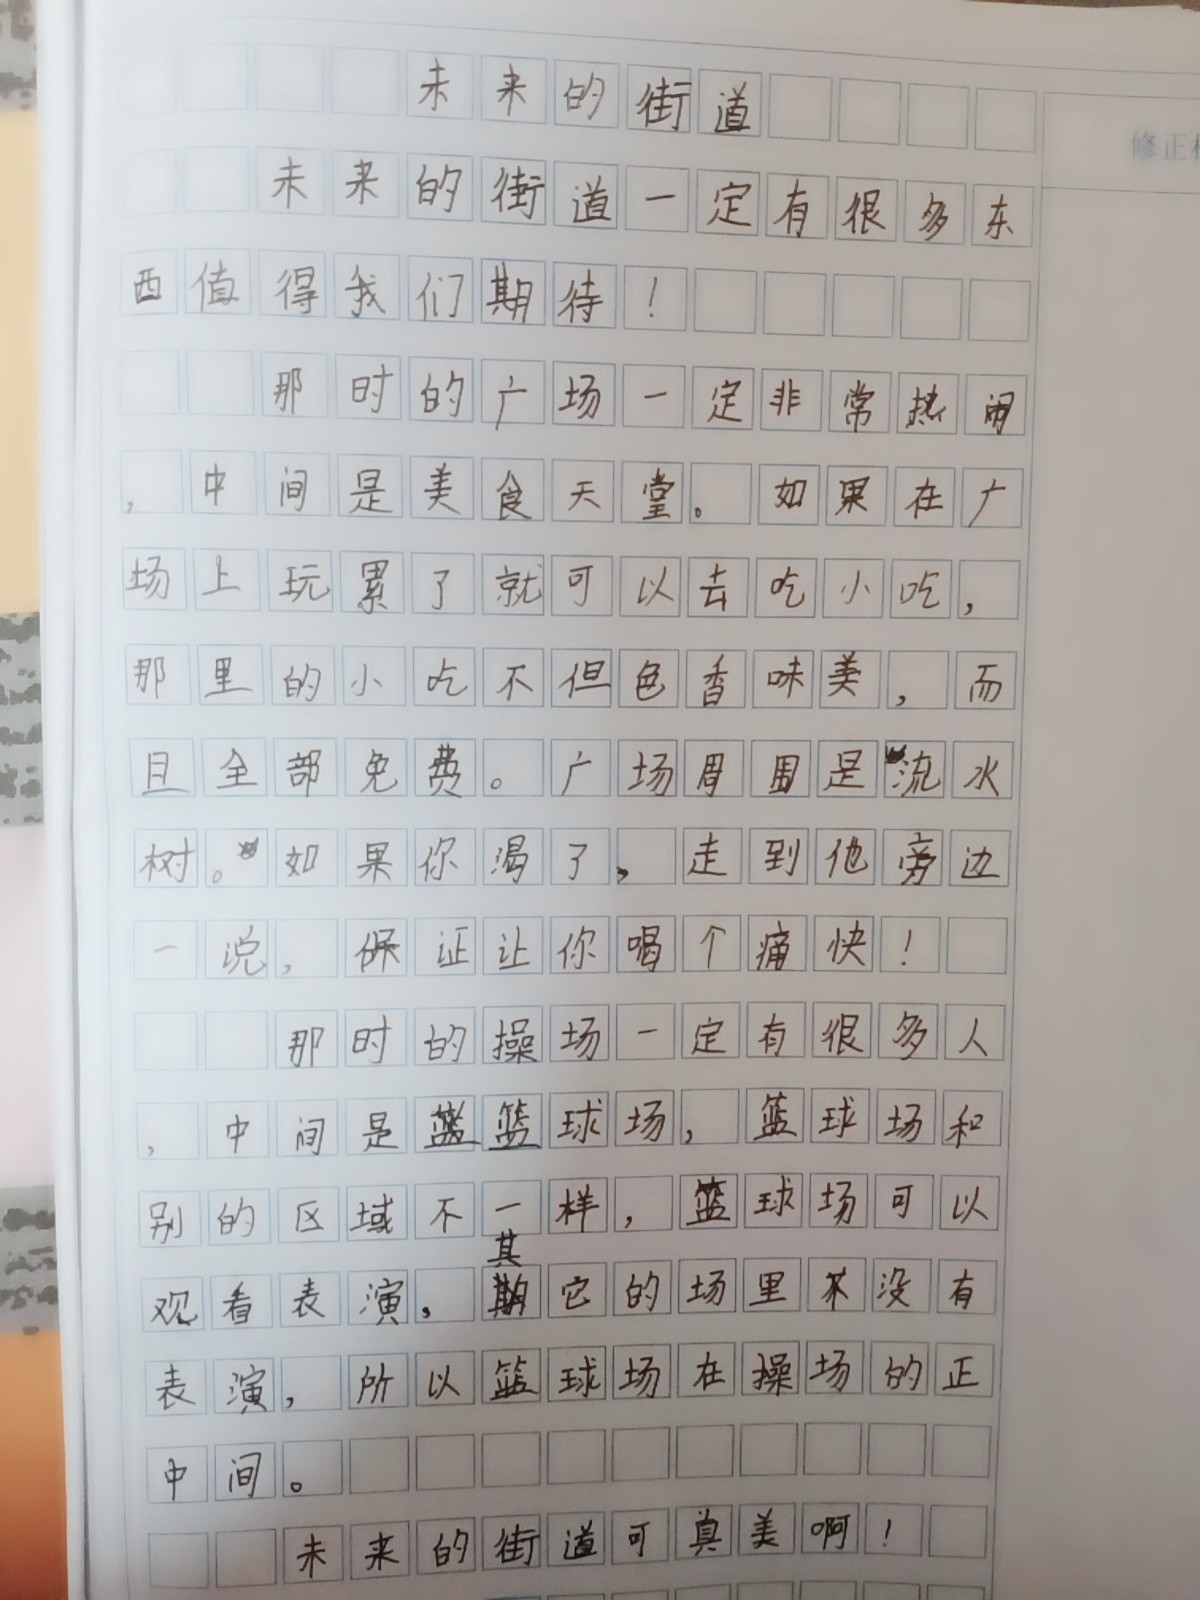 未来的街道
修正
未来的街道一定有很多东
西值得我们期待！
那时的广场一定非常热闹
，中间是美食天堂。如果在广
场上玩累了就可以去吃小吃，
那里的小吃不但色香味美，而
且全部免费。广场周围是流水
树。如果你渴了，走到他旁边
一说，保证让你喝个痛快！
那时的操场一定有很多人
，中间是篮球场，篮球场和
别的区域不一样，篮球场可以
观看表演，其它的场里没有
表演，所以篮球场在操场的正
中间。
未来的街道可真美啊！